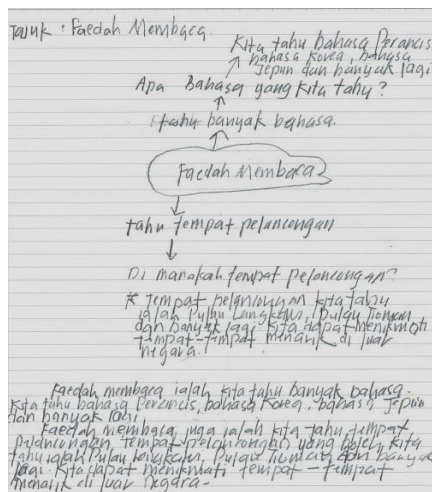 Tajuk : Faedah Membaca
Kita tahu bahasa Perancis
bahasa Korea, bahasa
Jepun dan banyak lagi
Apa Bahasa yang kita tahu?
tahu banyak bahasa.
Faedah Membaca
tahu tempat pelancongan
Di manakah tempat pelancongan?
* Tempat pelancongan kita tahu
ialah Pulau Langkawi, Pulau Tioman
dan banyak lagi kita dapat menikmati
tempat-tempat menarik di luar
negara.
Faedah membaca ialah kita tahu banyak bahasa.
Kita tahu bahasa Perancis, bahasa Korea, bahasa Jepun
dan banyak lagi.
Faedah membaca juga ialah kita tahu tempat
pelancongan. Tempat pelancongan yang boleh kita
tahu ialah Pulau Langkawi, Pulau Tioman dan banyak
lagi. Kita dapat menikmati tempat-tempat
menarik di luar negara.